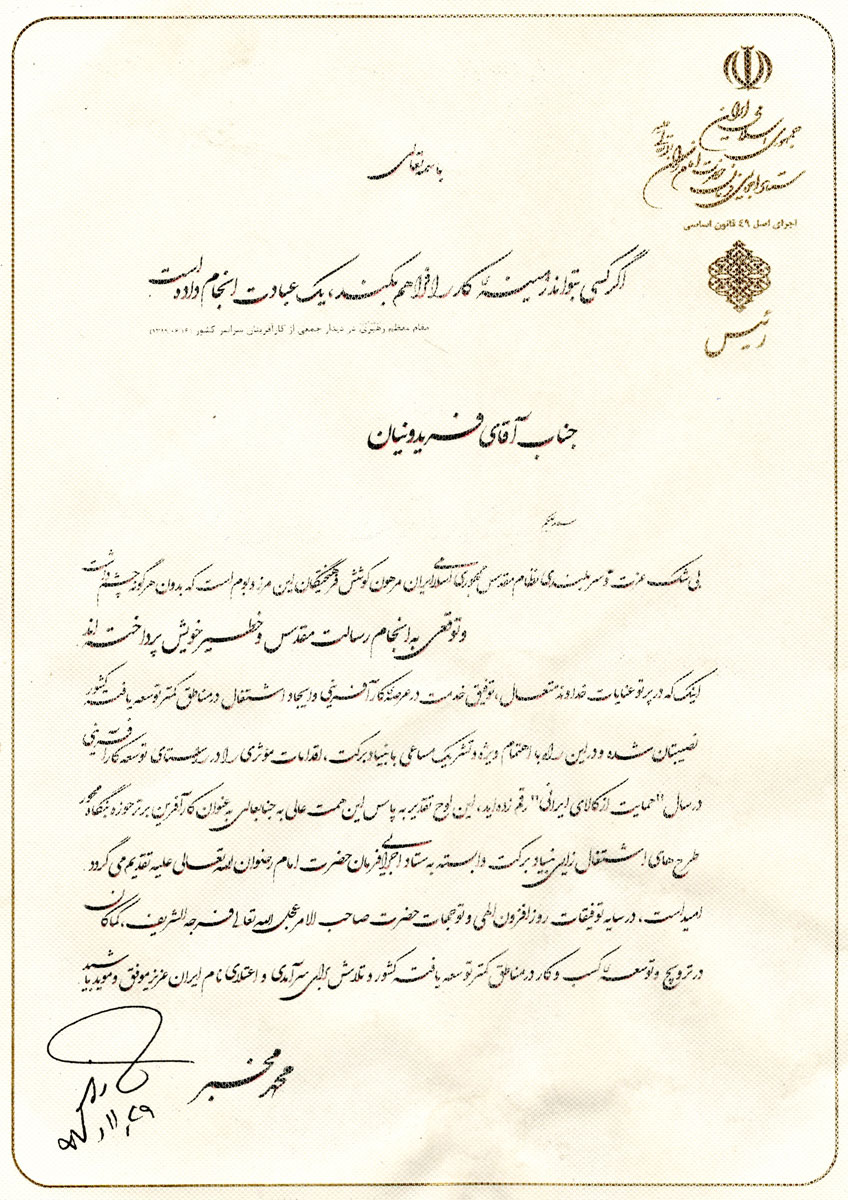 جمهوری اسلامی ایران
ستاد اجرایی فرمان حضرت امام
اجرای اصل ۴۹ قانون اساسی
رئیس
باسمه تعالی
اگر کسی بتواند زمینهٔ کار را فراهم بکند، یک عبادت انجام داده است.
مقام معظم رهبری، در دیدار جمعی از کارآفرینان سراسر کشور
جناب آقای فریدونیان
بی شک عزت و سربلندی نظام مقدس جمهوری اسلامی ایران مرهون کوشش فرهیختگان این مرز و بوم است که بدون هرگونه چشم داشت
و توقعی به انجام رسالت مقدس و خطیر خویش پرداخته اند
اینک که در پرتو عنایات خداوند متعال، توفیق خدمت در عرصهٔ کارآفرینی و ایجاد اشتغال در مناطق کمتر توسعه یافته کشور
نصیبتان شده و در این راه با اهتمام ویژه و تشریک مساعی با بنیاد برکت، اقدامات مؤثری را در راستای توسعه کارآفرینی
در سال "حمایت از کالای ایرانی" رقم زده اید، این لوح تقدیر به پاس این همت عالی به جنابعالی به عنوان کارآفرین برتر حوزه بنگاه محور
طرح های اشتغال زایی بنیاد برکت وابسته به ستاد اجرایی فرمان حضرت امام رضوان الله تعالی علیه تقدیم می گردد.
امید است، در سایه توفیقات روزافزون الهی و توجهات حضرت صاحب الامر عجل الله تعالی فرجه الشریف، کماکان
در ترویج و توسعهٔ کسب و کار در مناطق کمتر توسعه یافته کشور و تلاش برای سرآمدی و اعتلای نام ایران عزیز موفق و موید باشید.
محمد مخبر